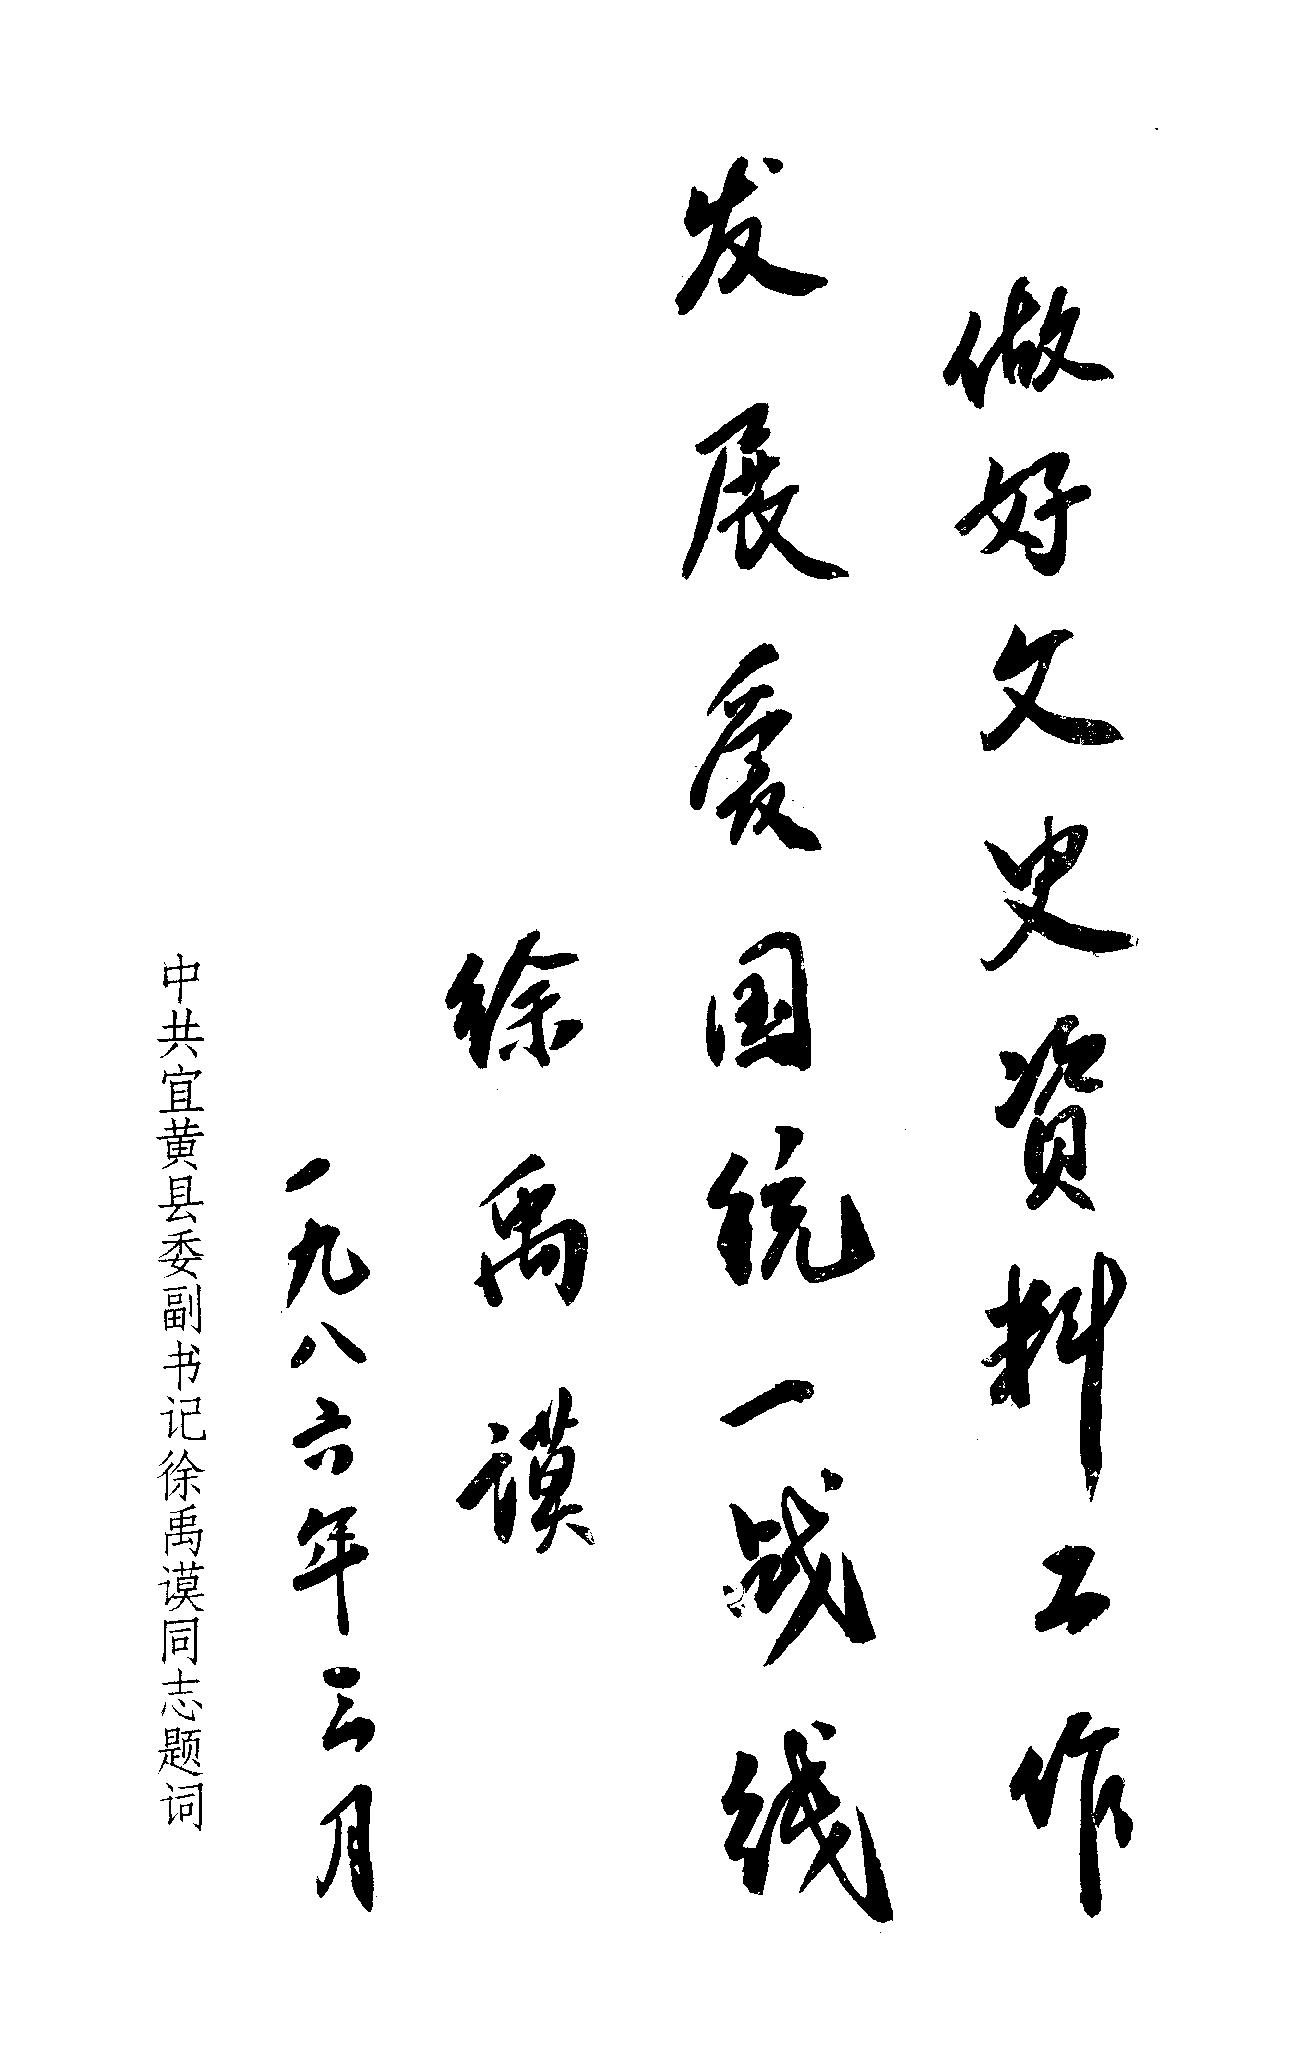 做好文史资料工作
发展爱国统一战线
徐禹谟
一九八六年三月
中共宜黄县委副书记徐禹谟同志题词